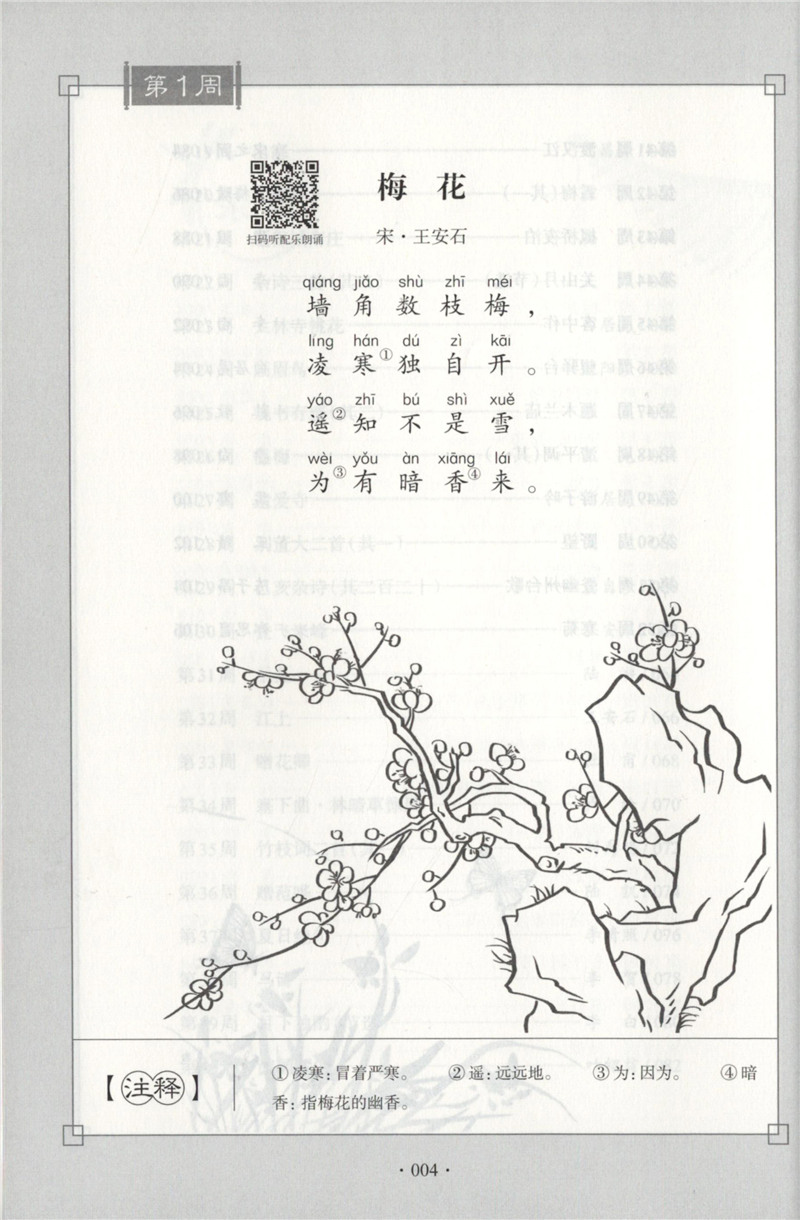 第1周
梅花
扫码听配乐朗诵
宋·王安石
qiáng jiǎo shù zhī méi
墙角数枝梅，
líng hán dú zì kāi
凌寒①独自开。
yáo zhī bú shì xuě
遥②知不是雪，
wèi yǒu àn xiāng lái
为③有暗香④来。
【注释】
①凌寒：冒着严寒。 ②遥：远远地。 ③为：因为。 ④暗
香：指梅花的幽香。
·004·